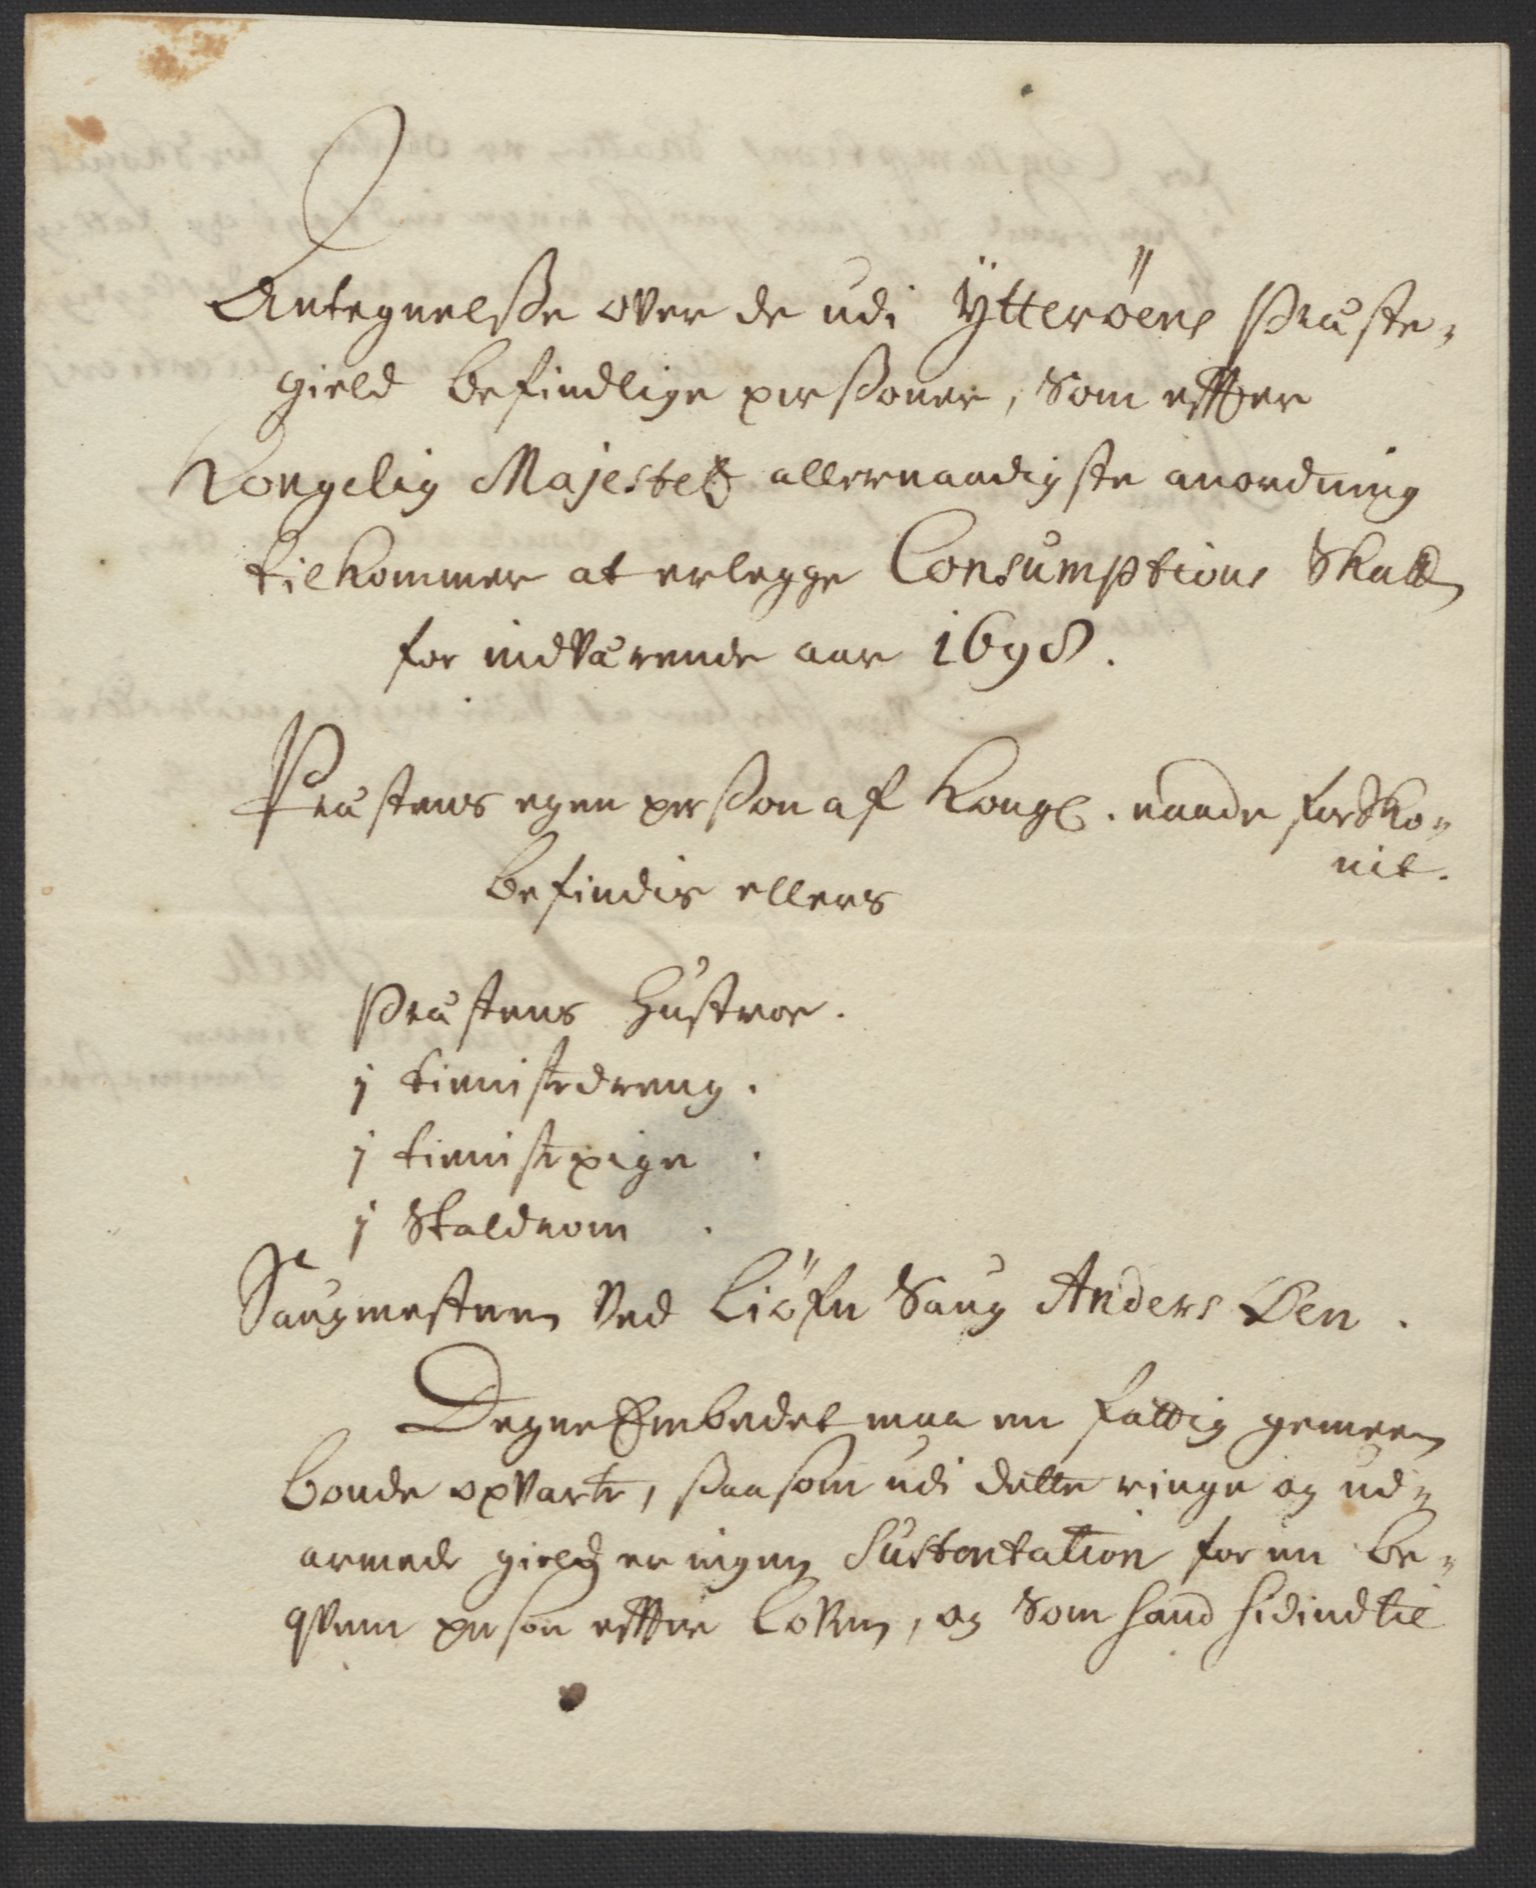 Antegnelsse over de udi Ÿtterøens Præste-
gield befindlige perssoner, som effter
Kongelig Majestetz allernaadigste anordning
tilkommer at erlegge Consumptions Skatt
for indværende aar 1698.
Præstens egen persson af Kongl. naade forsko-
nit.
befindis ellers
Præstens Hustroe.
1 tienistedreng.
1 tienistepige.
1 Staldrom.
Saugmesteren Ved Liøfn Saug Anders Øen.
Degne Embedet maa en fattig gemeen
bonde opvarte, ssaasom udi dette ringe og ud-
armede gield er ingen Sustentation for en be-
qvem person effter Loven, og som hand hidindtil